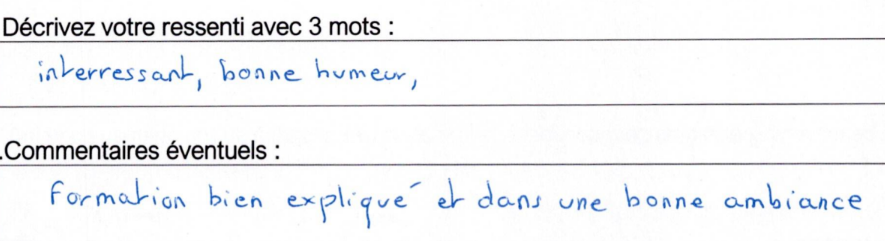 Décrivez votre ressenti avec 3 mots :
interressant, bonne humeur,
.Commentaires éventuels :
Formation bien expliqué et dans une bonne ambiance